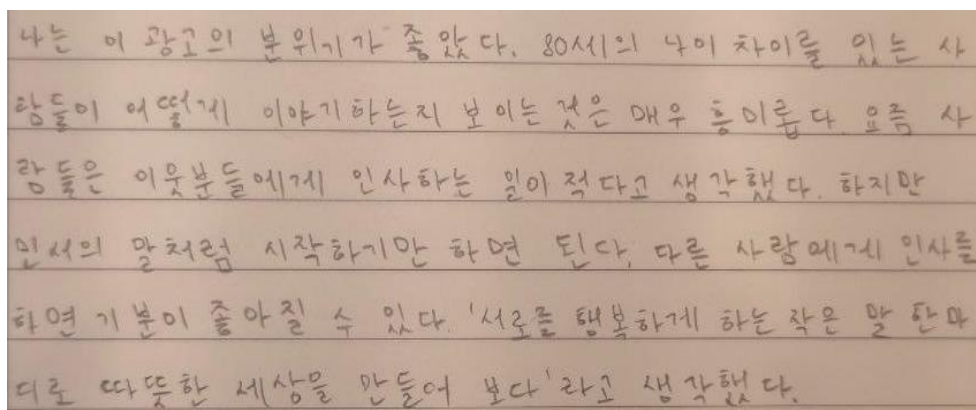 나는 이 광고의 분위기가 좋았다. 80세의 나이 차이를 있는 사
람들이 어떻게 이야기하는지 보이는 것은 매우 흥미롭다. 요즘 사
람들은 이웃분들에게 인사하는 일이 적다고 생각했다. 하지만
민서의 말처럼 시작하기만 하면 된다. 다른 사람에게 인사를
하면 기분이 좋아질 수 있다. '서로를 행복하게 하는 작은 말 한마
디로 따뜻한 세상을 만들어 보다'라고 생각했다.